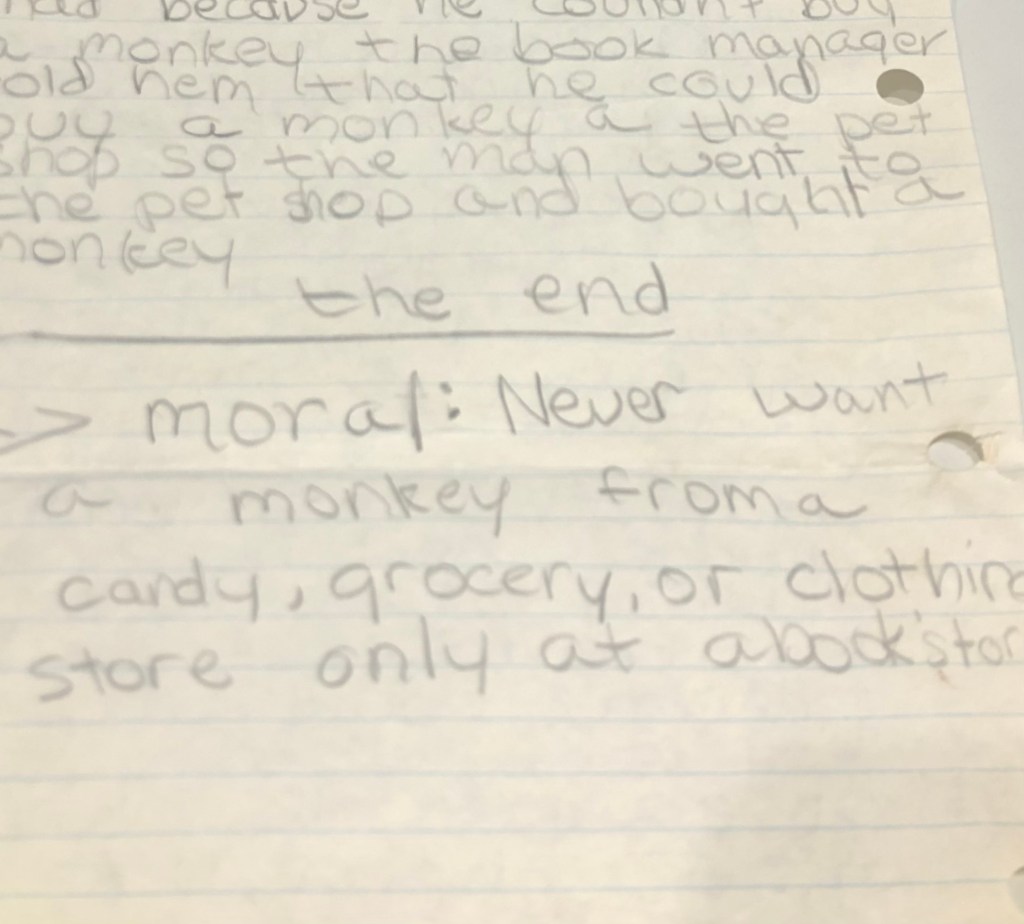 because he couldn't buy
a monkey the book manager
old hem that he could
buy a monkey a the pet
shop so the man went to
the pet shop and bought a
monkey
the end
-> moral: Never want
a monkey from a
candy, grocery, or clothing
store only at a book stor